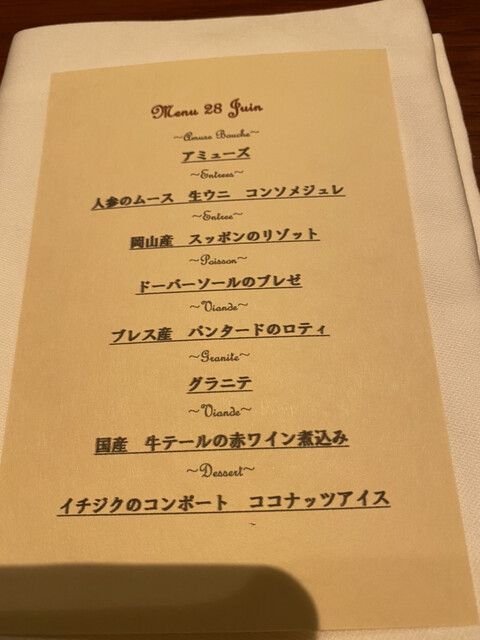 Menu 28 Juin
~Amuse Bouche~
アミューズ
~Entrees~
人参のムース　生ウニ　コンソメジュレ
~Entree~
岡山産　スッポンのリゾット
~Poisson~
ドーバーソールのブレゼ
~Viande~
ブレス産　パンタードのロティ
~Granite~
グラニテ
~Viande~
国産　牛テールの赤ワイン煮込み
~Dessert~
イチジクのコンポート　ココナッツアイス
~